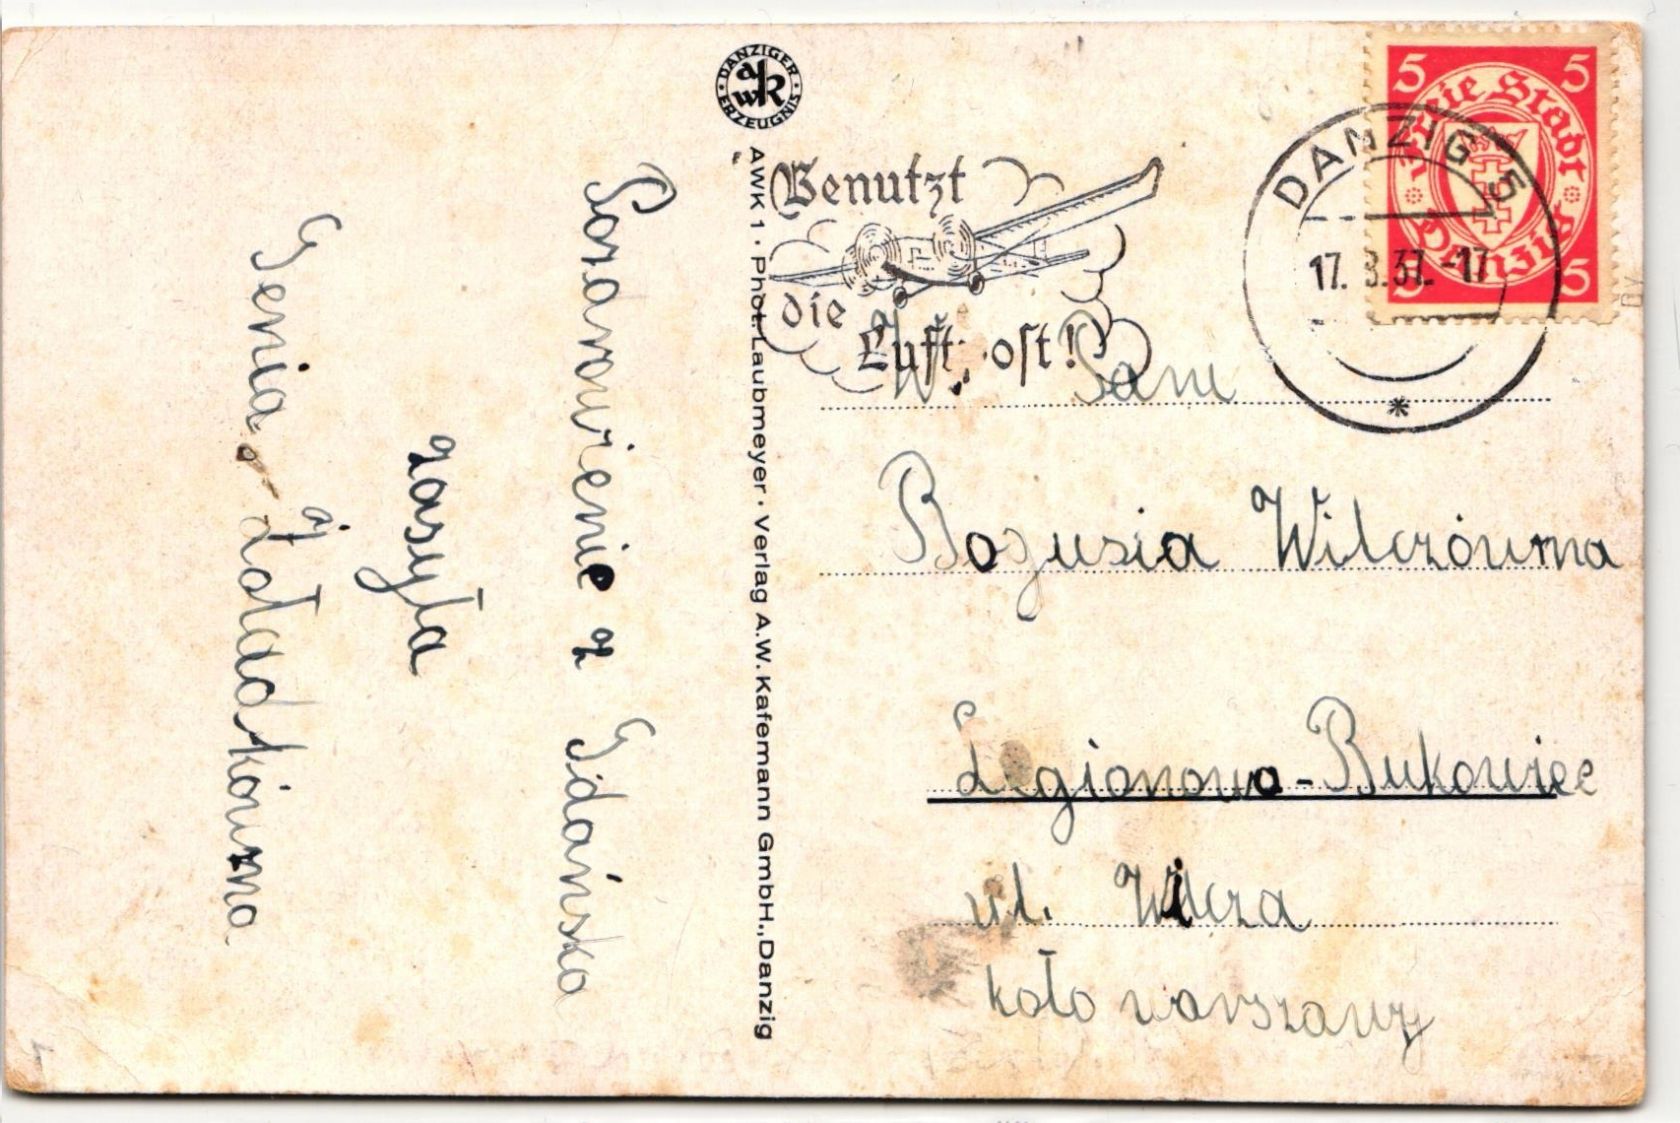 Pozdrowienie z Gdańska
zasyła
Genia
DANZIGER ERZEUGNIS
awk
AWK 1 · Phot. Laubmeyer · Verlag A.W. Kafemann GmbH., Danzig
Benutzt
die
Luftpost!
5 5
Freie Stadt Danzig
5 5
DANZIG 5
17. 8.37.-17
*
W. Pani
Bogusia Wilczówna
Legionowo-Bukowiec
ul. Wilcza
koło warszawy